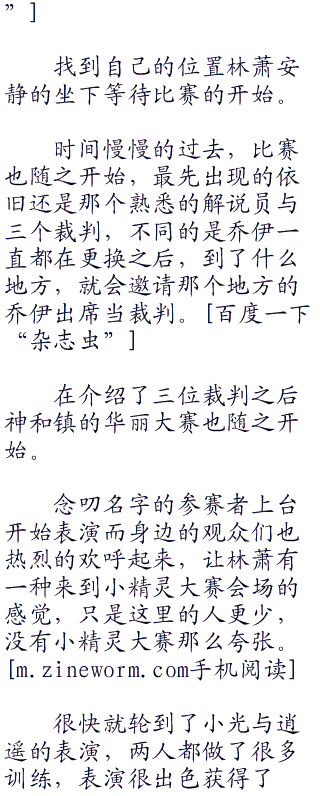 ”]
找到自己的位置林萧安
静的坐下等待比赛的开始。
时间慢慢的过去，比赛
也随之开始，最先出现的依
旧还是那个熟悉的解说员与
三个裁判，不同的是乔伊一
直都在更换之后，到了什么
地方，就会邀请那个地方的
乔伊出席当裁判。[百度一下
“杂志虫”]
在介绍了三位裁判之后
神和镇的华丽大赛也随之开
始。
念叨名字的参赛者上台
开始表演而身边的观众们也
热烈的欢呼起来，让林萧有
一种来到小精灵大赛会场的
感觉，只是这里的人更少，
没有小精灵大赛那么夸张。
[m.zineworm.com手机阅读]
很快就轮到了小光与逍
遥的表演，两人都做了很多
训练，表演很出色获得了